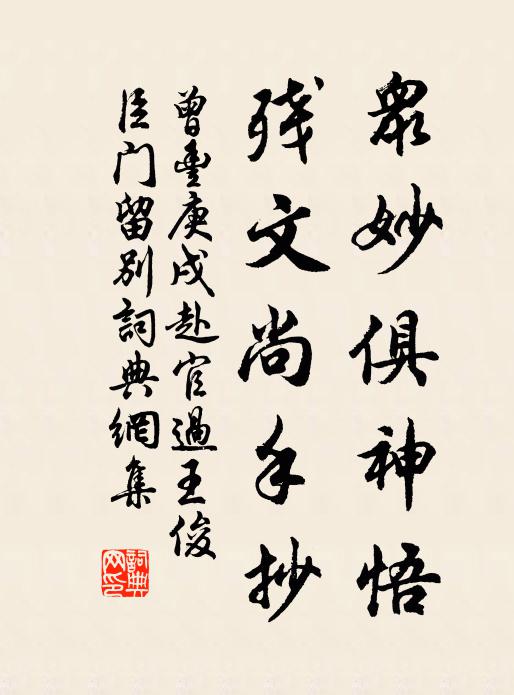 眾妙俱神悟
殘文尚手抄
曾豐庚戌赴官過王俊
臣门留別詞典網集
詞典网印